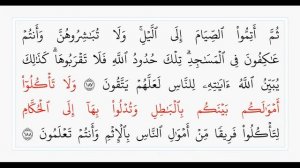 ثُمَّ أَتِمُّوا۟ ٱلصِّيَامَ إِلَى ٱلَّيْلِ ۚ وَلَا تُبَـٰشِرُوهُنَّ وَأَنتُمْ
عَـٰكِفُونَ فِى ٱلْمَسَـٰجِدِ ۗ تِلْكَ حُدُودُ ٱللَّهِ فَلَا تَقْرَبُوهَا ۗ كَذَٰلِكَ
يُبَيِّنُ ٱللَّهُ ءَايَـٰتِهِۦ لِلنَّاسِ لَعَلَّهُمْ يَتَّقُونَ ١٨٧ وَلَا تَأْكُلُوٓا۟
أَمْوَٰلَكُم بَيْنَكُم بِٱلْبَـٰطِلِ وَتُدْلُوا۟ بِهَآ إِلَى ٱلْحُكَّامِ
لِتَأْكُلُوا۟ فَرِيقًا مِّنْ أَمْوَٰلِ ٱلنَّاسِ بِٱلْإِثْمِ وَأَنتُمْ تَعْلَمُونَ ١٨٨